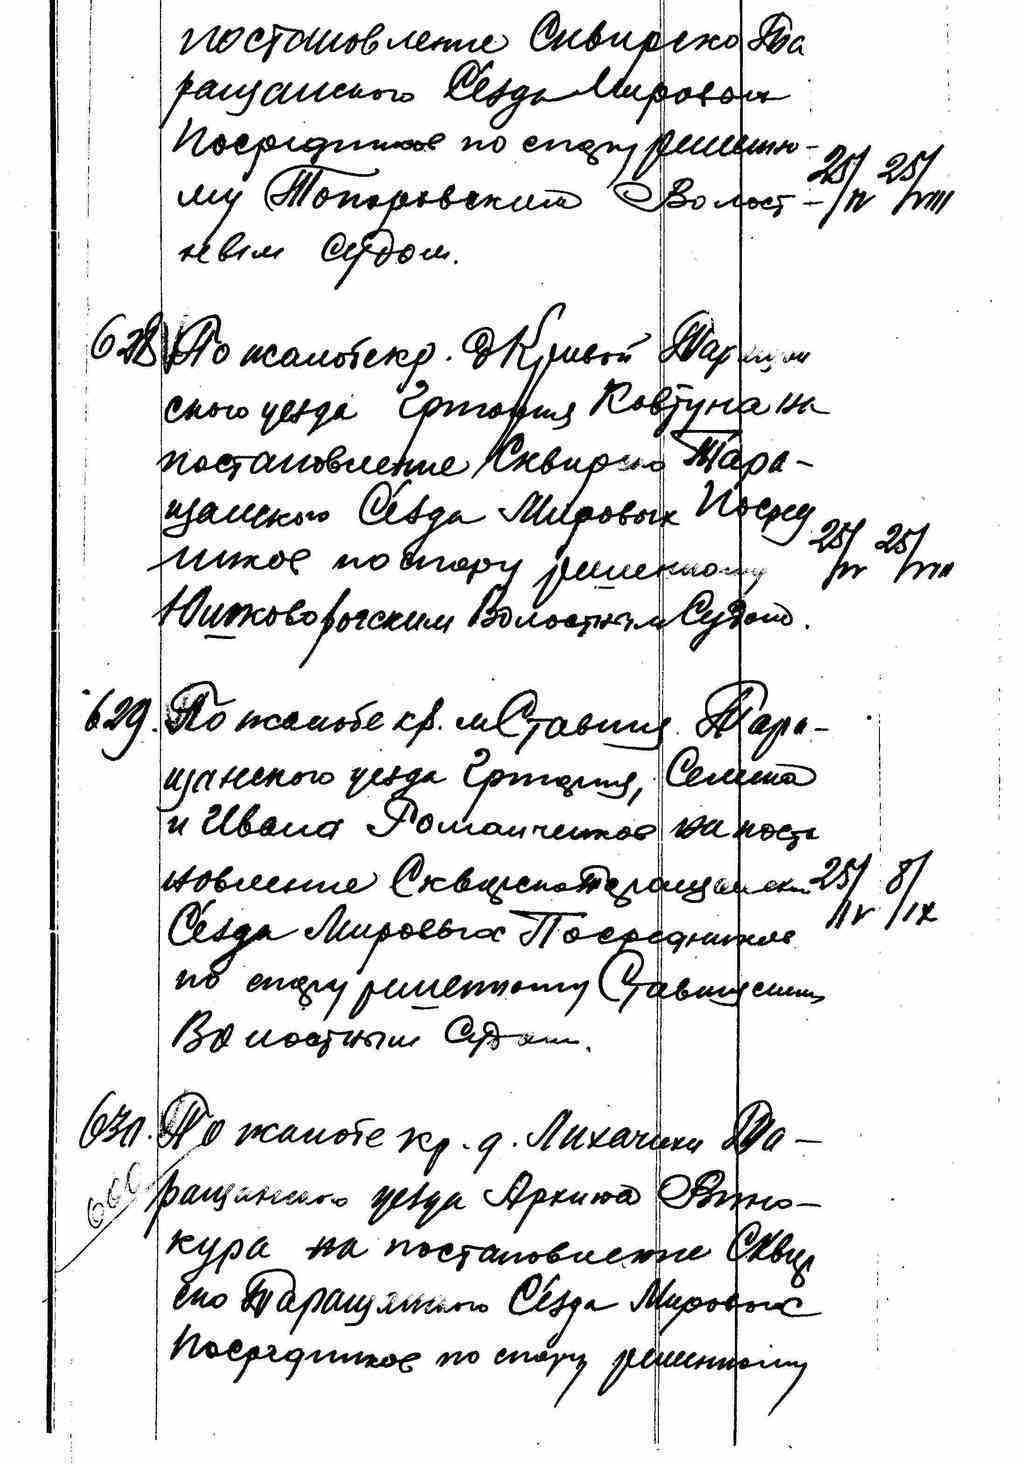 постановление Сквирско Та
ращанского Съезда Мировых
Посредников по спору решенно-
му Топоровским Волост- 25/IV 25/VIII
ным Судом.
628 По жалобе кр. д Кривой Таращан
ского уезда Григория Ковтуна на
постановление Сквирско Тара-
щанского Съезда Мировых Посред
ников по спору решенному 25/IV 25/VIII
Волостным Судом.
629. По жалобе кр. м Ставищ Тара-
щанского уезда Григория, Семена
и Ивана Романченков на поста
новление Сквирско Таращанского 25/IV 8/IX
Съезда Мировых Посредников
по спору решенному Ставищским
Волостным Судом.
630. По жалобе кр. д. Лихачихи Та-
ращанского уезда Архипа Вино-
кура на постановление Сквир
ско Таращанского Съезда Мировых
Посредников по спору решенному